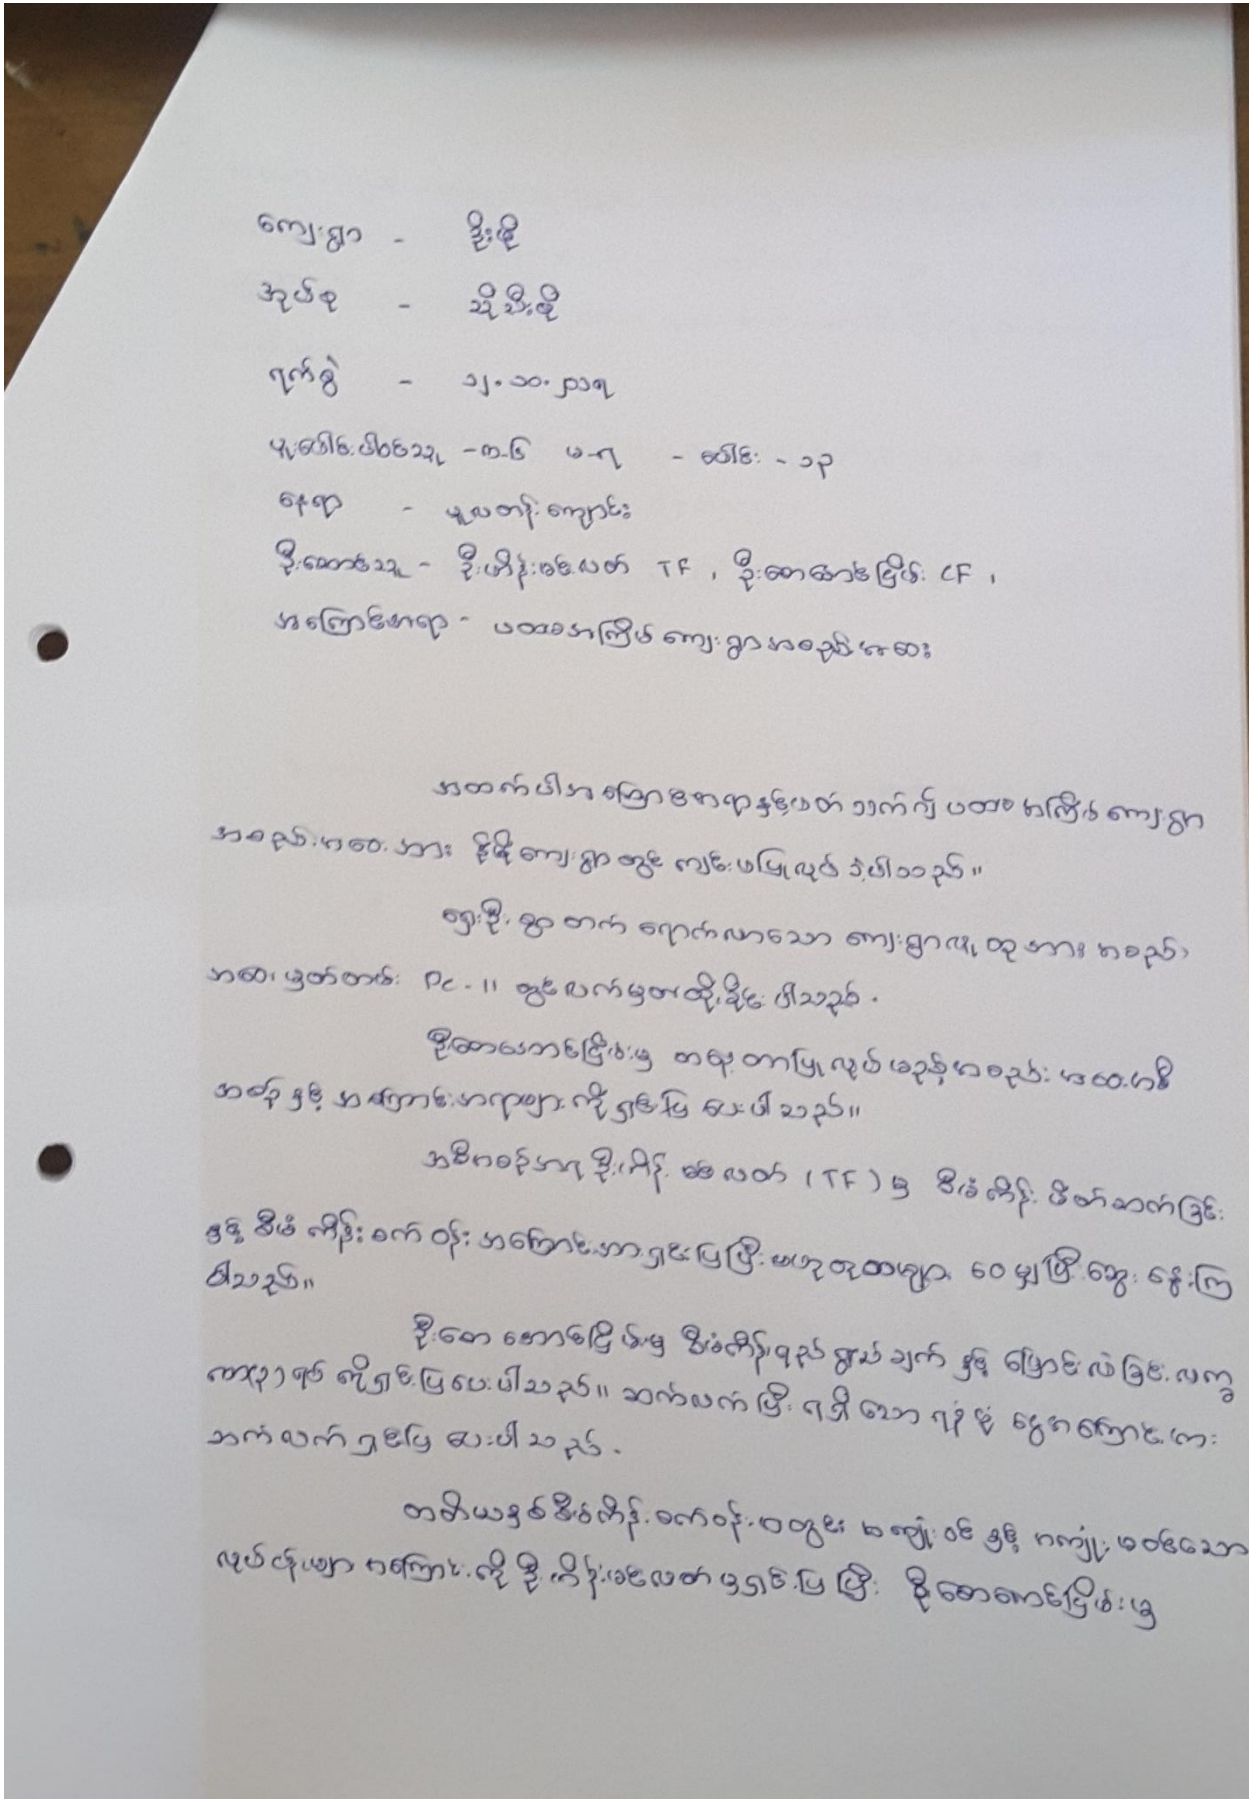 ကျေးရွာ - ဒိုးဖို
အုပ်စု - သိုသီးဖို
ရက်စွဲ - ၁၂.၁၀.၂၁၅
ပူးပေါင်းပါဝင်သူ - က-၆ မ-၇ - ပေါင်း - ၁၃
နေရာ - မူလတန်းကျောင်း
ဦးဆောင်သူ - ဦးဟိန်းခင်လတ် TF , ဦးစောအောင်ငြိမ်း CF ,
အကြောင်းအရာ - ပထမအကြိမ် ကျေးရွာအစည်းအဝေး
အထက်ပါအကြောင်းအရာနှင့်ပတ်သက်၍ ပထမအကြိမ် ကျေးရွာ
အစည်းအဝေးအား ဒိုးဖိုကျေးရွာတွင် ကျင်းပပြုလုပ်ခဲ့ပါသည်။
ရှေးဦးစွာ တက်ရောက်လာသော ကျေးရွာလူထုအား အစည်း
အဝေးမှတ်တမ်း PC-11 တွင်လက်မှတ်ထိုးခိုင်းပါသည်.
ဦးစောအောင်ငြိမ်းမှ ယနေ့တာပြုလုပ်မည့်အစည်းအဝေး၏
အစဉ်နှင့် အကြောင်းအရာများကိုရှင်းပြပေးပါသည်။
အစီအစဉ်အရ ဦးဟိန်းခင်လတ် (TF) မှ စီမံကိန်း မိတ်ဆက်ခြင်း
နှင့် စီမံကိန်းစက်ဝန်းအကြောင်းအားရှင်းပြပြီး ဗဟုသုတများ ဝေမျှပြီးဆွေးနွေးကြ
ပါသည်။
ဦးစောအောင်ငြိမ်းမှ စီမံကိန်းရည်ရွယ်ချက် နှင့် ပြောင်းလဲခြင်းလက္ခ
ဏာ(၃)ရပ် ကိုရှင်းပြပေးပါသည်။ ဆက်လက်ပြီး ရရှိသော ရန်ပုံငွေအကြောင်းအား
ဆက်လက်ရှင်းပြပေးပါသည်.
တတိယနှစ်စီမံကိန်းစက်ဝန်းအတွင်း အကျုံးဝင်နှင့် အကျုံးမဝင်သော
လုပ်ငန်းများအကြောင်းကို ဦးဟိန်းခင်လတ်မှရှင်းပြပြီး ဦးစောအောင်ငြိမ်းမှ